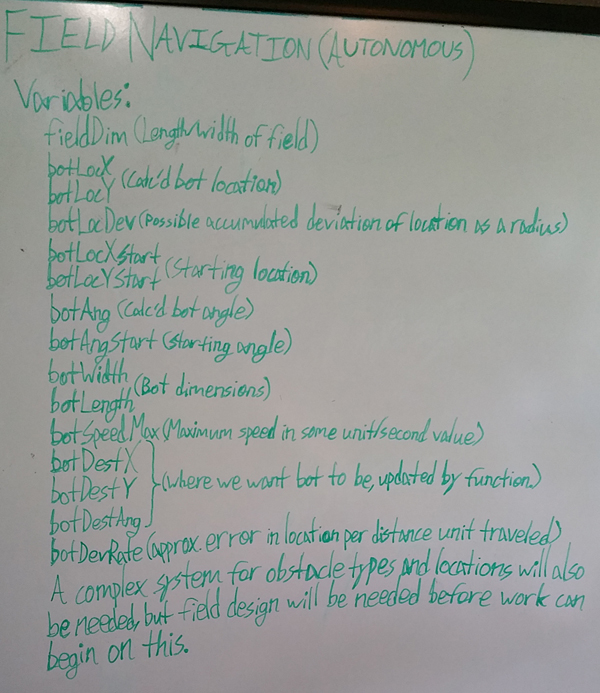 FIELD NAVIGATION (AUTONOMOUS)
Variables:
fieldDim (Length/width of field)
botLocX
botLocY (Calc'd bot location)
botLocDev (Possible accumulated deviation of location as a radius)
botLocXStart
botLocYStart (Starting location)
botAng (Calc'd bot angle)
botAngStart (starting angle)
botWidth
botLength (Bot dimensions)
botSpeedMax (Maximum speed in some unit/second value)
botDestX
botDestY (where we want bot to be, updated by function.)
botDestAng
botDevRate (approx. error in location per distance unit traveled)
A complex system for obstacle types and locations will also
be needed, but field design will be needed before work can
begin on this.